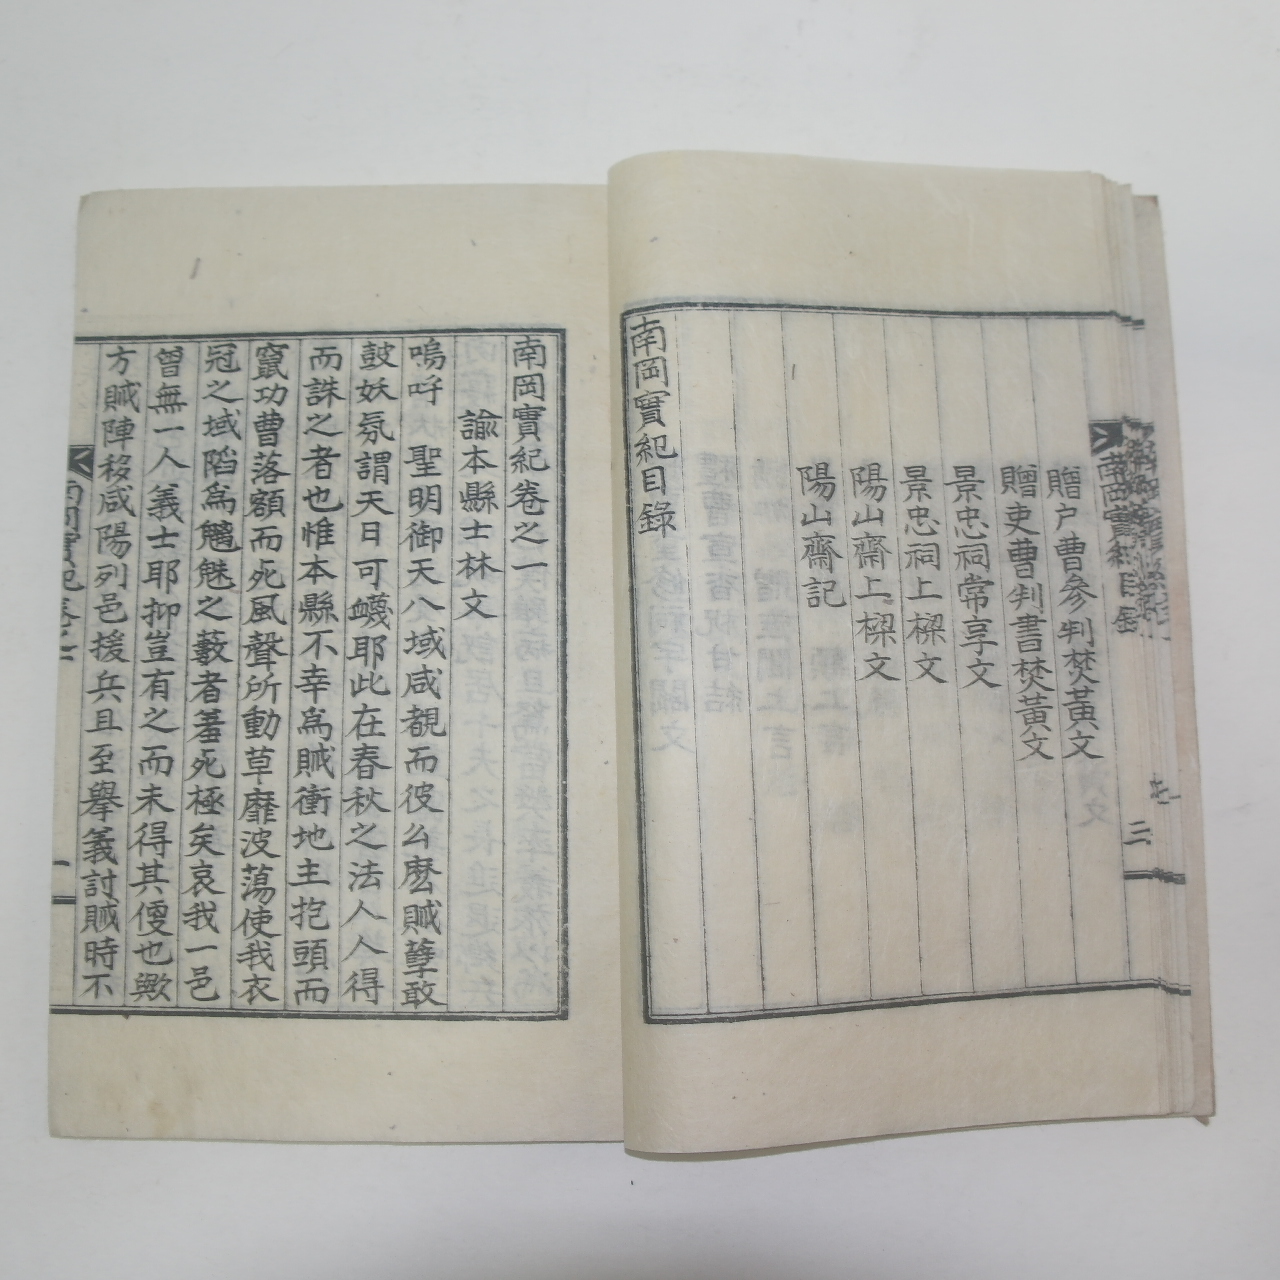 贈户曹參判焚黃文
贈吏曹判書焚黃文
景忠祠常享文
景忠祠上樑文
陽山齋上樑文
陽山齋記
南岡實紀目錄
南岡實紀目錄
三
南岡實紀卷之一
諭本縣士林文
嗚呼 聖明御天八域咸覩而彼么麽賊孽敢
鼓妖氛謂天日可衊耶此在春秋之法人人得
而誅之者也惟本縣不幸爲賊衝地主抱頭而
竄功曹落額而死風聲所動草靡波蕩使我衣
冠之域陷爲魑魅之藪者羞死極矣哀我一邑
曾無一人義士耶抑豈有之而未得其便也歟
方賊陣移咸陽列邑援兵且至擧義討賊時不
南岡實紀卷之一
一